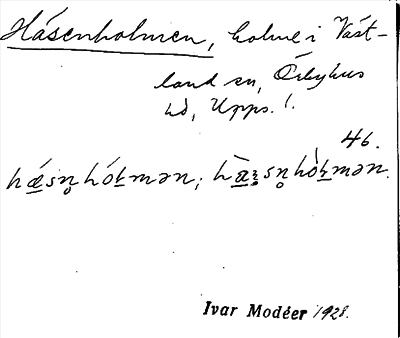 Håsenholmen, holme i Väst-
land sn, Örbyhus
hd, Upps. l.
46.
hǽsn̥hólmən; hæ̀sn̥hòlmən.
Ivar Modéer 1928.